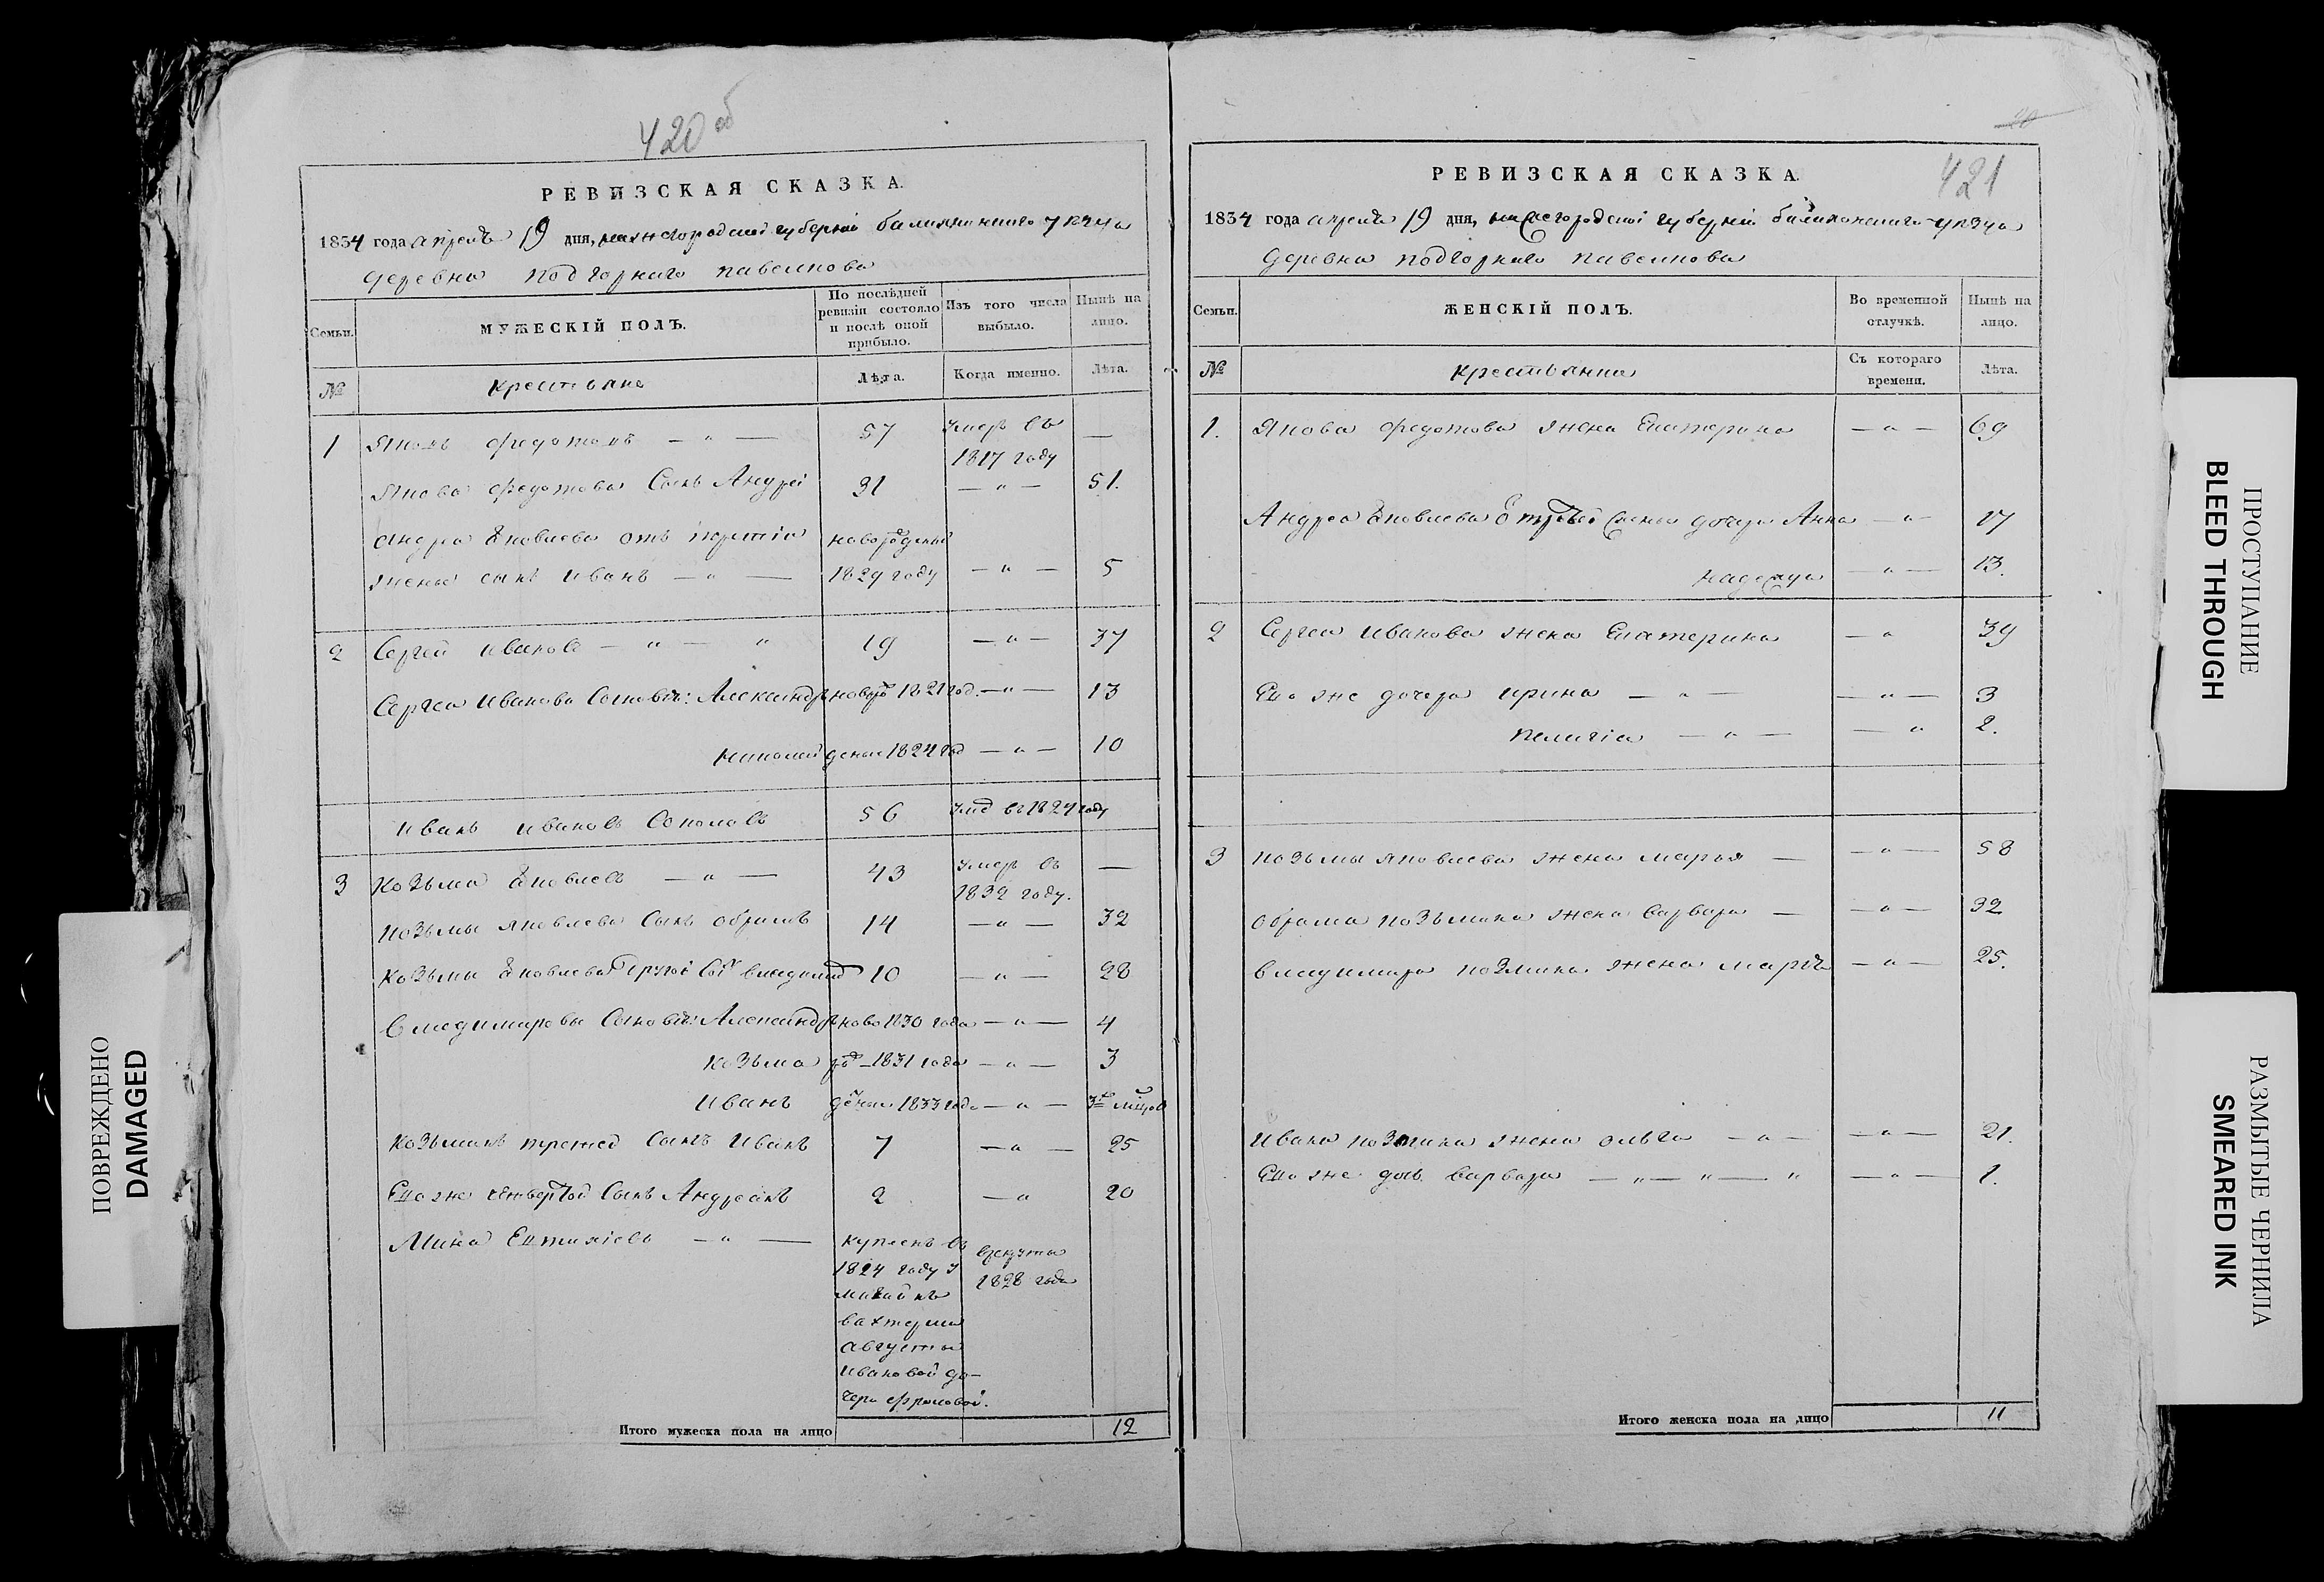 420 об
РЕВИЗСКАЯ СКАЗКА.
1834 года апреля 19 дня, нижегородской губернии балахнинского уезда
деревна подгорнаго павелкова
Семьи.
МУЖЕСКІЙ ПОЛЪ.
По послѣдней ревизіи состояло и послѣ оной прибыло.
Изъ того числа выбыло.
Нынѣ на лицо.
№
крестьяне
Лѣта.
Когда именно.
Лѣта.
1 Яковъ федотовъ — „ — 57 умеръ въ 1817 году —
Якова федотова Сынъ Андрей 31 — „ — 51.
андрея Яковлева отъ
жены сынъ иванъ — „ — новорожденный 1829 году — „ — 5
2 Сергей ивановъ — „ — „ 19 — „ — 37
Сергея Иванова Сыновья: Александръ новоро 1821 год. — „ — 13
николай деные 1824 год — „ — 10
иванъ ивановъ Соколовъ 56 умер въ 1824 году
3 Козьма Яковлевъ — „ — 43 умеръ въ 1832 году. —
козьмы яковлева Сынъ обрамъ 14 — „ — 32
Козьмы Яковлева другой Сын владимир 10 — „ — 28
владимировы Сыновья: Александръ ново 1830 года — „ — 4
козьма рож — 1831 года — „ — 3
иванъ денные 1833 года — „ — 3х мцов
Козьминъ третей Сынъ иванъ 7 — „ — 25
Его же четвертой Сынъ Андреянъ 2 — „ 20
Мина Евтихіевъ — „ —
купленъ въ
1824 году у
Августы
Ивановой до-
чери
врекруты
1828 года
Итого мужеска пола на лицо 12
20
421
РЕВИЗСКАЯ СКАЗКА.
1834 года апреля 19 дня, нижегородской губернии балахнинскаго уезда
деревна подгорнаго павелкова
Семьи.
ЖЕНСКІЙ ПОЛЪ.
Во временной отлучкѣ.
Нынѣ на лицо.
№
крестьянки
Съ котораго времени.
Лѣта.
1. Якова федотова жена Екатерина — „ — 69
Андрея Яковлева жены дочери Анна — „ — 17
надежда — „ — 13.
2 Сергея иванова жена Екатерина — „ 39
Его же дочери ирина — „ — — „ — 3
пелагія — „ — — „ 2.
3 козьмы яковлева жена марья — — „ — 58
обрама козьмина жена варвара — — „ — 32
владимира козмина жена марья — „ — 25.
ивана козмина жена ольга — „ — — „ — 21.
Его же дочь варвара — „ — „ — „ — „ — 1.
Итого женска пола на лицо 11
ПОВРЕЖДЕНО
DAMAGED
ПРОСТУПАНИЕ
BLEED THROUGH
РАЗМЫТЫЕ ЧЕРНИЛА
SMEARED INK